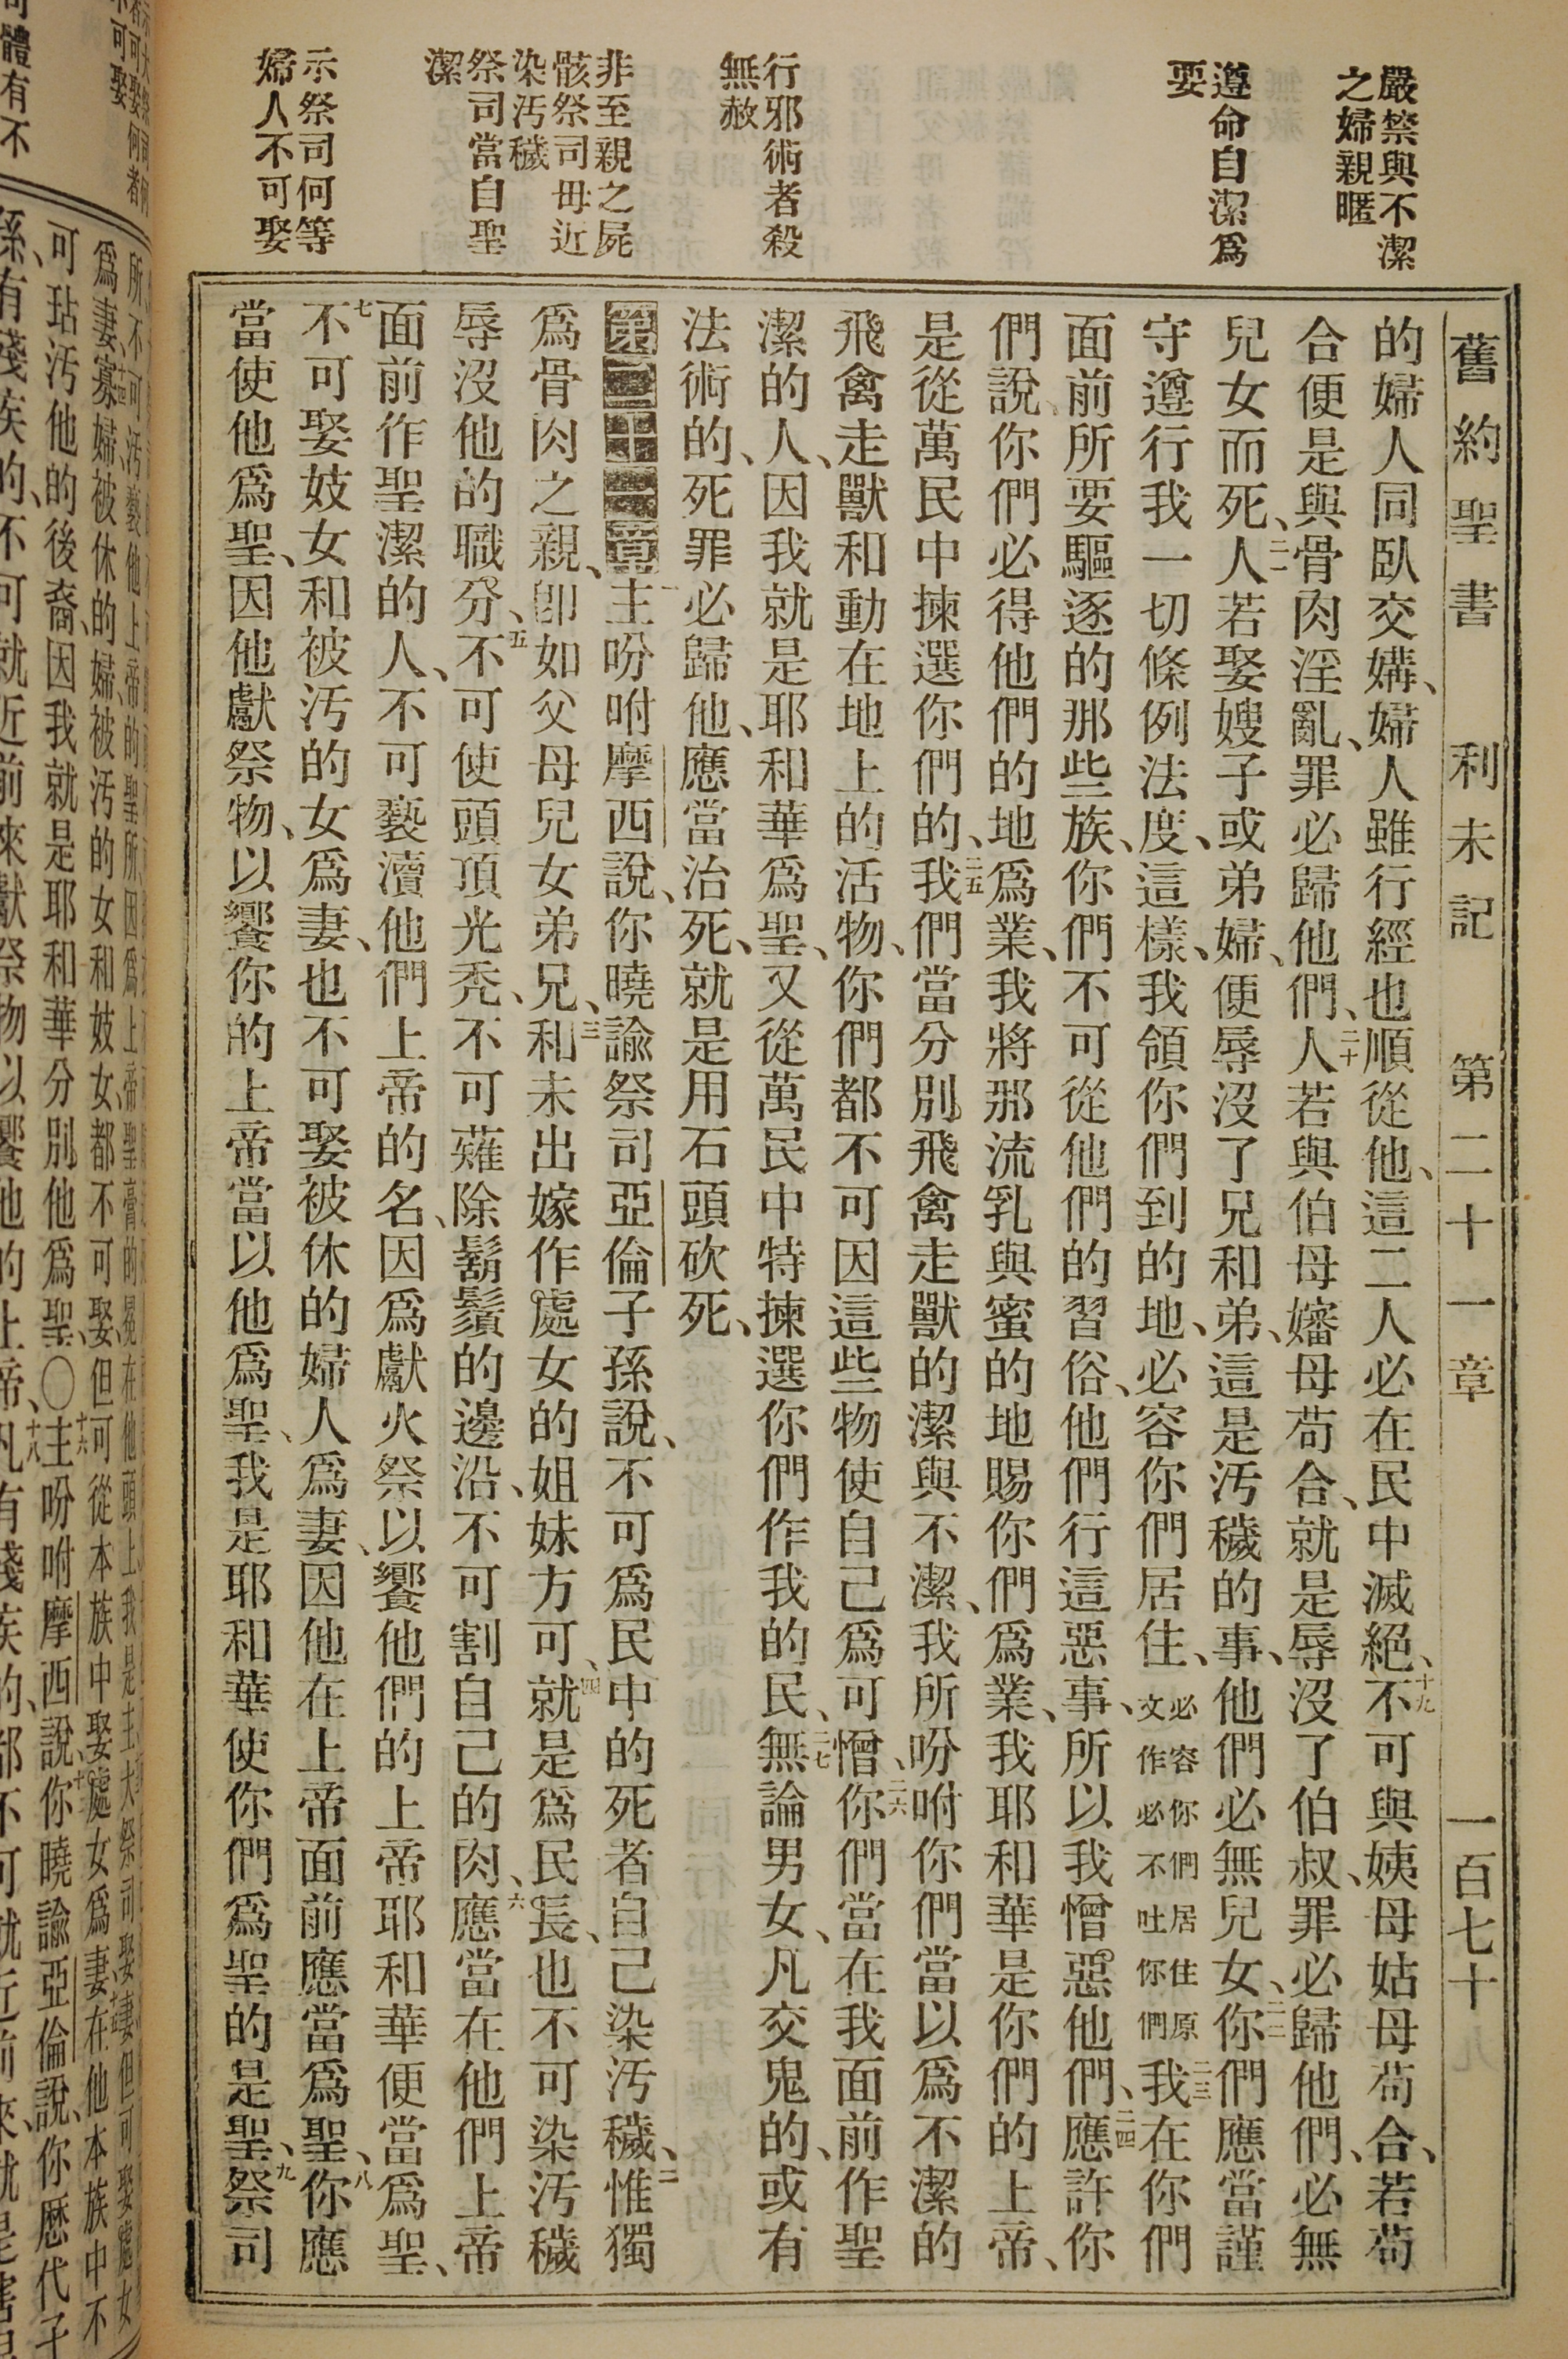 舊約聖書 利未記 第二十一章 一百七十
嚴禁與不潔
之婦親暱
遵命自潔爲
要
行邪術者殺
無赦
非至親之屍
骸祭司毋近
染汚穢
祭司當自聖
潔
示祭司何等
婦人不可娶
的婦人同臥交媾、婦人雖行經也順從他、這二人必在民中滅絕、十九不可與姨母姑母苟合、若苟
合便是與骨肉淫亂、罪必歸他們、二十人若與伯母嬸母苟合、就是辱沒了伯叔、罪必歸他們、必無
兒女而死、二一人若娶嫂子或弟婦、便辱沒了兄和弟、這是汚穢的事、他們必無兒女、二二你們應當謹
守遵行我一切條例法度、這樣、我領你們到的地、必容你們居住、必容你們居住原文作必不吐你們二三我在你們
面前所要驅逐的那些族、你們不可從他們的習俗、他們行這惡事、所以我憎惡他們、二四應許你
們說、你們必得他們的地爲業、我將那流乳與蜜的地賜你們爲業、我耶和華是你們的上帝、
是從萬民中揀選你們的、二五我們當分別飛禽走獸的潔與不潔、我所吩咐你們當以爲不潔的
飛禽走獸和動在地上的活物、你們都不可因這些物使自己爲可憎、二六你們當在我面前作聖
潔的人、因我就是耶和華爲聖、又從萬民中特揀選你們作我的民、二七無論男女、凡交鬼的、或有
法術的、死罪必歸他、應當治死、就是用石頭砍死、
第二十一章 一主吩咐摩西說、你曉諭祭司亞倫子孫說、不可爲民中的死者自己染汚穢、二惟獨
爲骨肉之親、卽如父母兒女弟兄、三和未出嫁作處女的姐妹方可、四就是爲民長、也不可染汚穢
辱沒他的職分、五不可使頭頂光禿、不可薙除鬍鬚的邊沿、不可割自己的肉、六應當在他們上帝
面前作聖潔的人、不可褻瀆他們上帝的名、因爲獻火祭以饗他們的上帝耶和華便當爲聖、
七不可娶妓女和被汚的女爲妻、也不可娶被休的婦人爲妻、因他在上帝面前應當爲聖、八你應
當使他爲聖、因他獻祭物、以饗你的上帝當以他爲聖、我是耶和華使你們爲聖的是聖、九祭司
所不可汚褻他上帝的聖所、因爲上帝聖膏的冕在他頭上我是主大祭司娶妻但可娶處女
爲妻、十四寡婦被休的婦、被汚的女和妓女、都不可娶、但可從本族中娶處女爲妻、在他本族中不
可玷汚他的後裔、因我就是耶和華分別他爲聖、〇十六主吩咐摩西說、十七你曉諭亞倫說、你歷代子
孫、有殘疾的、不可就近前來獻祭物以饗他的上帝、十八凡有殘疾的、都不可就近前來、就是瞎